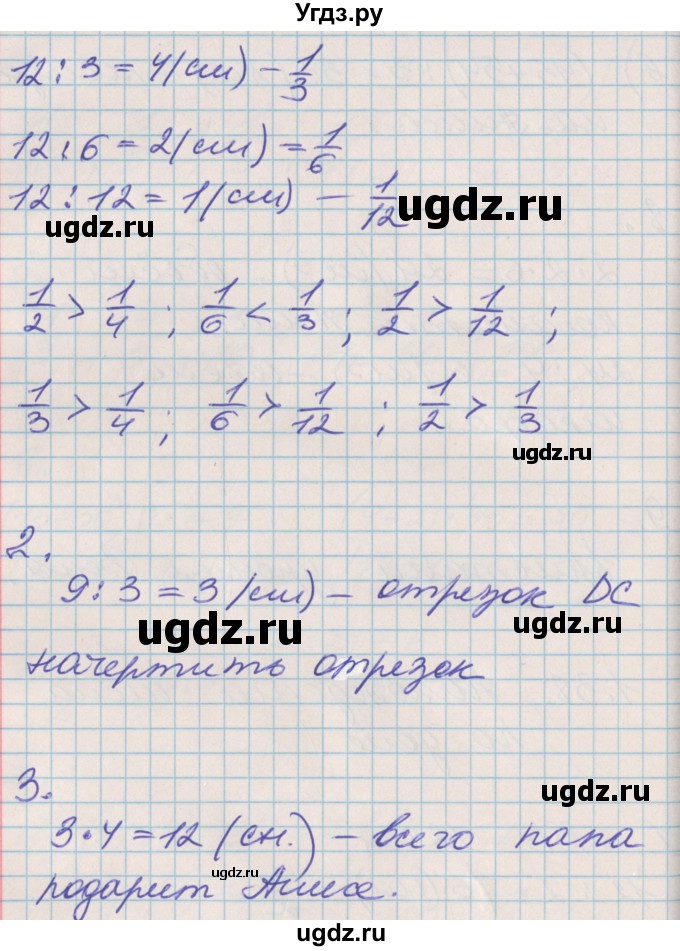 Угдз.ру
12 : 3 = 4 (см) – 1/3
12 : 6 = 2 (см) = 1/6
12 : 12 = 1 (см) – 1/12
ugdz.ru
ugdz.ru
1/2 > 1/4 ; 1/6 < 1/3 ; 1/2 > 1/12 ;
1/3 > 1/4 ; 1/6 > 1/12 ; 1/2 > 1/3
ugdz.ru
2.
9 : 3 = 3 (см) – отрезок DC
ugdz.ru
ugdz.ru
начертить отрезок
3.
ugdz.ru
3 · 4 = 12 (сн.) – всего папа
ugdz.ru
подарит
ugdz.ru